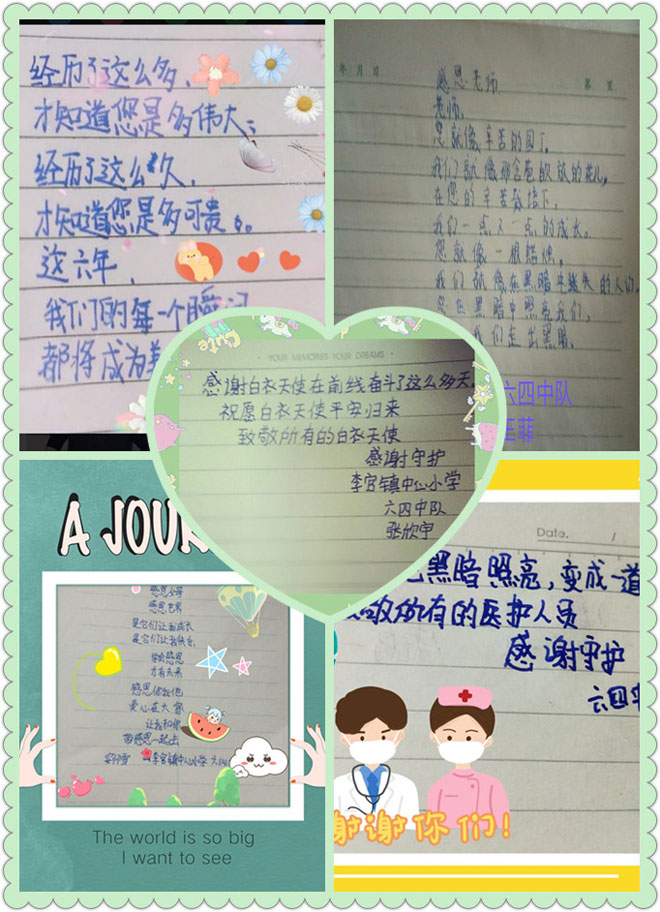 经历了这么多，
才知道您是多伟大；
经历了这么久，
才知道您是多可贵。
这六年，
我们的每一个瞬间
都将成为
年 月 日
第 页
感恩老师
老师，
您就像辛苦的园丁，
我们就像那含苞欲放的花儿，
在您的辛苦栽培下，
我们一点又一点的成长。
您就像一根蜡烛，
我们就像在黑暗中迷失的人们，
您在黑暗中照亮我们，
我们走出黑暗。
六四中队
王菲
YOUR MEMORIES YOUR DREAMS
感谢白衣天使在前线奋斗了这么多天，
祝愿白衣天使平安归来
致敬所有的白衣天使
感谢守护
李官镇中心小学
六四中队
张欣宇
A JOUR
感恩父母
感恩世界
是它们让我成长
是它们让我快乐
学会感恩
才有未来
感恩你我他
爱心在大家
让我和你
带感恩一起去
李官镇中心小学
The world is so big
I want to see
Date.
黑暗照亮，变成一道
致敬所有的医护人员
感谢守护
六四
谢谢你们！